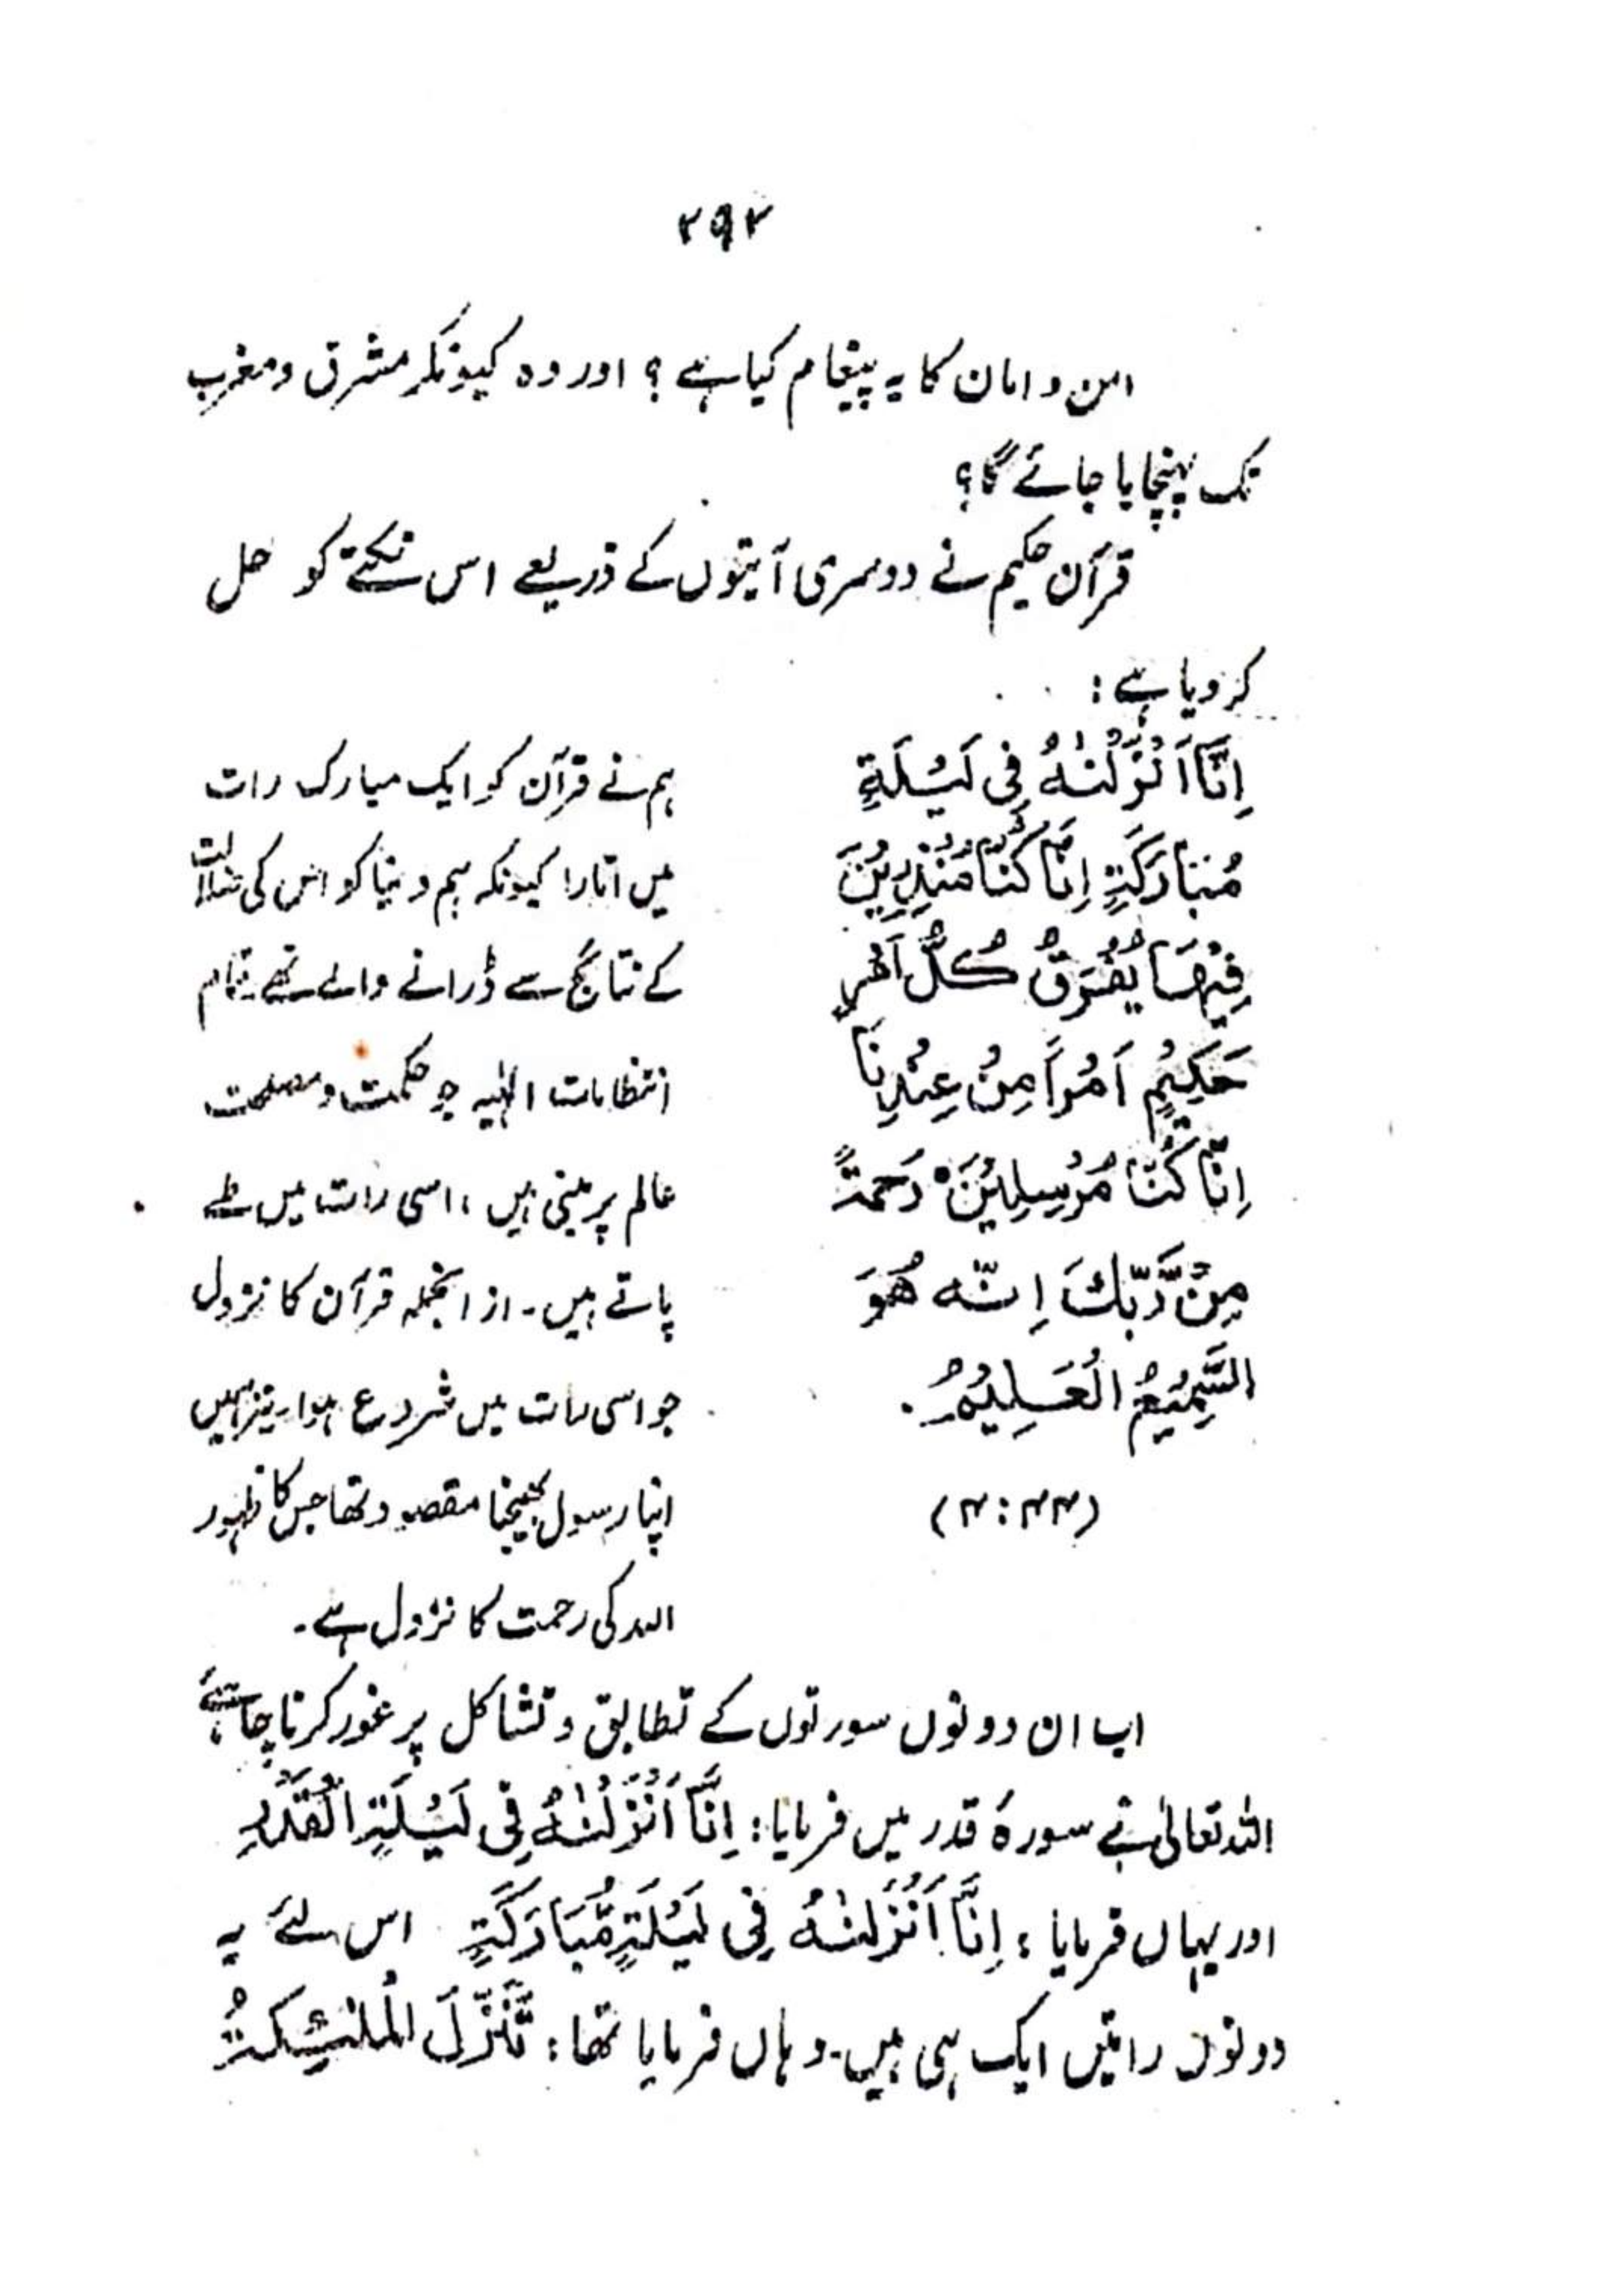 ۲۹۲
امن و امان کا یہ پیغام کیا ہے ؟ اور وہ کیونکر مشرق و مغرب
تک پہنچایا جائے گا؟
قرآن حکیم نے دوسری آیتوں کے ذریعے اس نکتے کو حل
کر دیا ہے :
اِنَّا اَنْزَلْنٰهُ فِی لَیْلَةٍ
مُّبَارَکَةٍ اِنَّا کُنَّا مُنْذِرِیْنَ
فِیْهَا یُفْرَقُ کُلُّ اَمْرٍ
حَکِیْمٍ اَمْراً مِنْ عِنْدِنَا
اِنَّا کُنَّا مُرْسِلِیْنَ ° رَحمَةً
مِنْ رَّبِّكَ اِنَّه هُوَ
السَّمِیْعُ الْعَلِیْمُ .
(۴۴ : ۴)
ہم نے قرآن کو ایک مبارک رات
میں اتارا کیونکہ ہم دنیا کو اس کی ضلالت
کے نتائج سے ڈرانے والے تھے تمام
انتظامات الٰہیہ جو حکمت و مصلحت
عالم پر مبنی ہیں ، اسی رات میں طے
پاتے ہیں ۔ از انجملہ قرآن کا نزول
جو اسی رات میں شروع ہوا۔ نیز ہمیں
اپنا رسول بھیجنا مقصود تھا جس کا ظہور
اللہ کی رحمت کا نزول ہے ۔
اب ان دونوں سورتوں کے تطابق و تشاکل پر غور کرنا چاہئے
اللہ تعالیٰ نے سورۂ قدر میں فرمایا : اِنَّا اَنْزَلْنٰهُ فِی لَیْلَةِ الْقَدْرِ
اور یہاں فرمایا ؛ اِنَّا اَنْزَلْنٰهُ فِی لَیْلَةٍ مُّبَارَکَةٍ اس لئے یہ
دونوں راتیں ایک ہی ہیں ۔ وہاں فرمایا تھا : تَنَزَّلَ الْمَلٰئِکَةُ